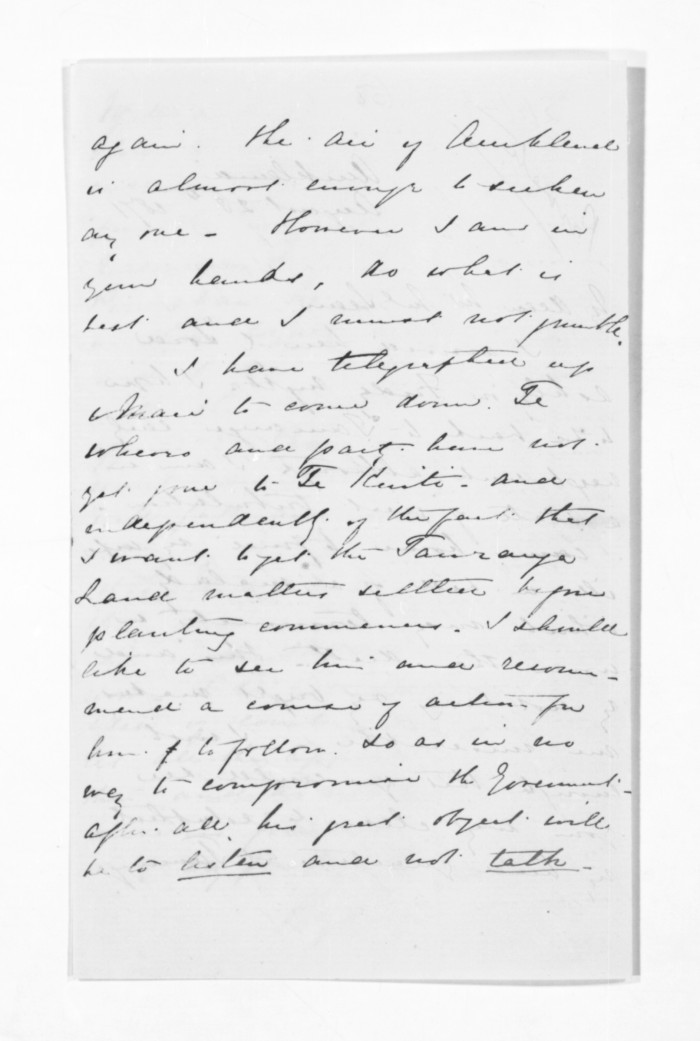 again. The air of Auckland
is almost enough to sicken
any one - However I am in
your hands, do what is
best and I must not grumble.
I have telegraphed up
to come down. Te
Wheoro and party have not
yet gone to Te Kuiti - and
independently of the fact that
I want to get the Tauranga
Land matters settled before
planting commences. I should
like to see him and recom-
mend a course of action for
him to follow. So as in no
way to compromise the Government -
after all, his great object will
be to listen and not talk -